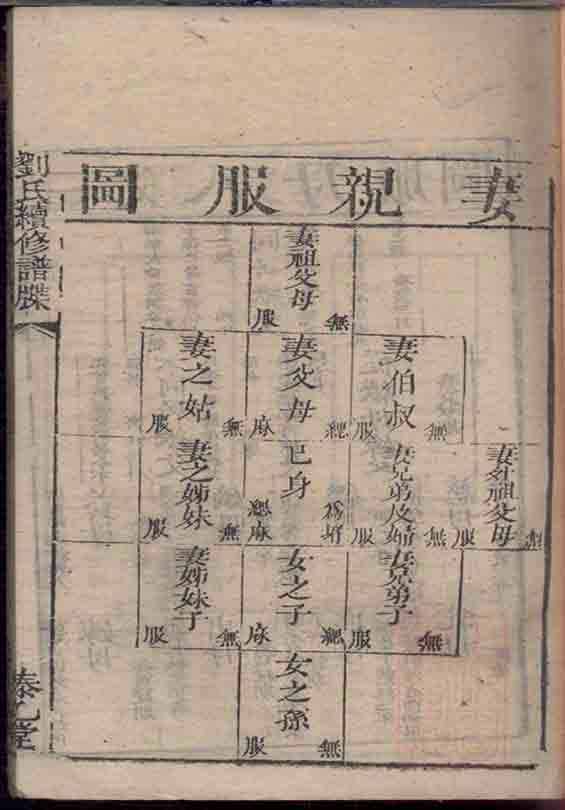 妻親服圖
妻祖父母
無服
妻伯叔
無服
妻父母
緦麻
妻之姑
無服
妻外祖父母
無服
妻兄弟及婦
無服
己身
為壻緦麻
妻之姊妹
無服
妻兄弟子
無服
女之子
緦麻
妻姊妹子
無服
女之孫
無服
劉氏續修譜牒